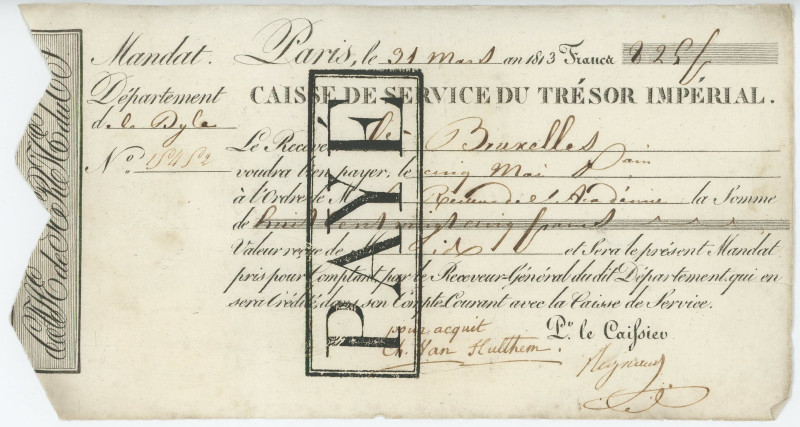 Mandat.
Paris, le 31 mars an 1813 Francs 825 f
Département
de la Dyle
CAISSE DE SERVICE DU TRÉSOR IMPÉRIAL.
Nº 15452
Le Receveur de Bruxelles
voudra bien payer, le cinq Mai
à l'Ordre de M. le Receveur de l'Académie la Somme
de huit cent vingt cinq francs
Valeur reçue de M. et Sera le présent Mandat
pris pour Comptant par le Receveur-Général du dit Département, qui en
sera Crédité, dans son Compte Courant avec la Caisse de Service.
pour acquit
Ch. Van Hulthem.
Pr. le Caissier
PAYÉ